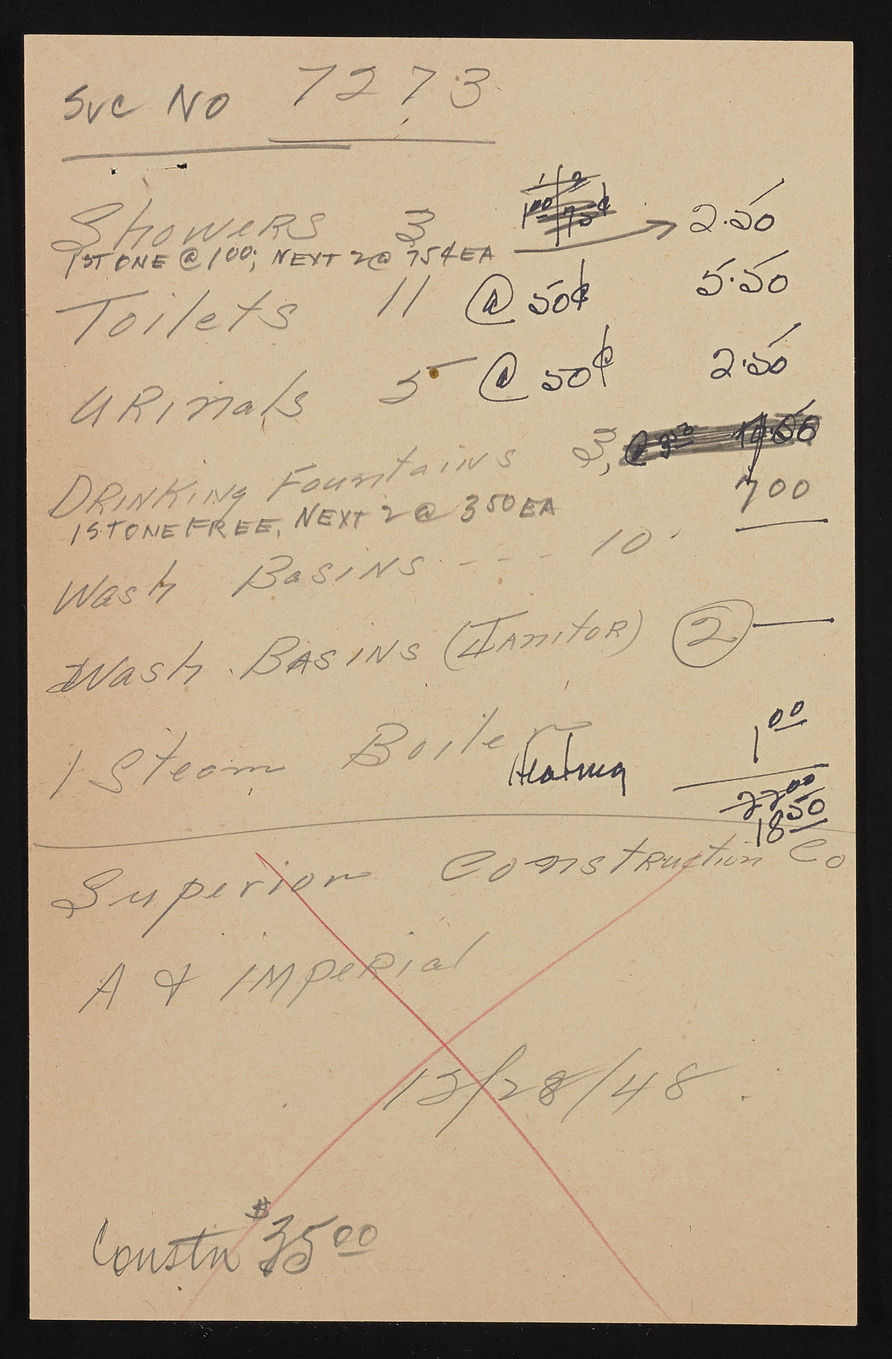 Svc No 7273
Showers 3 2.50
1ST ONE @ 1 00; NEXT 2 @ 75¢ EA
Toilets 11 @ 50¢ 5.50
URinals 5 @ 50¢ 2.50
DRINKing Fountains 3,
1ST ONE FREE, NEXT 2 @ 3 50 EA 7 00
Wash Basins - - - 10
Wash BASINS (JAnitoR) 2 —
1 Steam Boiler Heating 1 00
22 00
18 50
Superior ConstRuction Co
A & IMpeRial
12/28/48
Constn $35 00